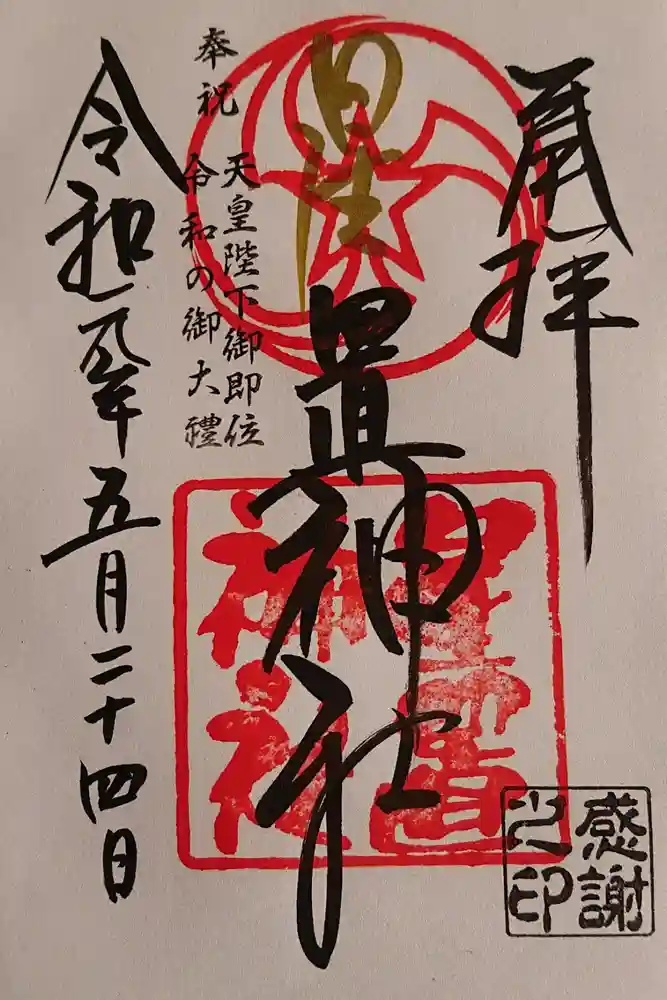 奉拝
星置神社
星置
神社
奉祝
天皇陛下御即位
令和の御大禮
令和元年五月二十四日
感謝
之印